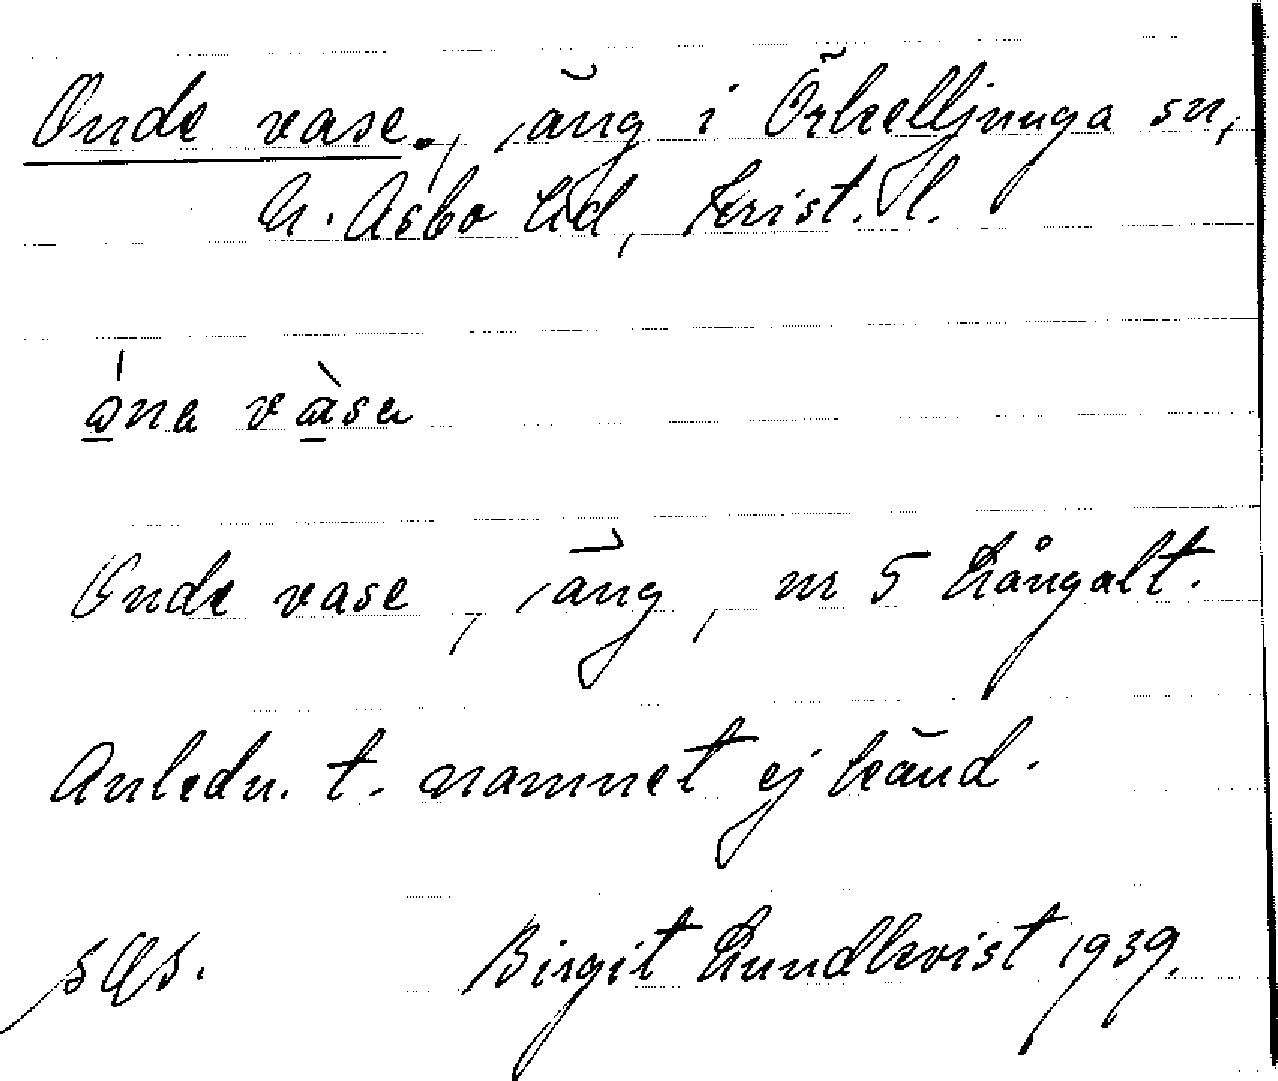 Onde vase., äng i Örkelljunga sn,
N. Åsbo hd, Krist. l.
óna vàsa
Onde vase, äng, nr 5 Långalt.
Anledn. t. namnet ej känd.
Birgit Lundkvist 1939.